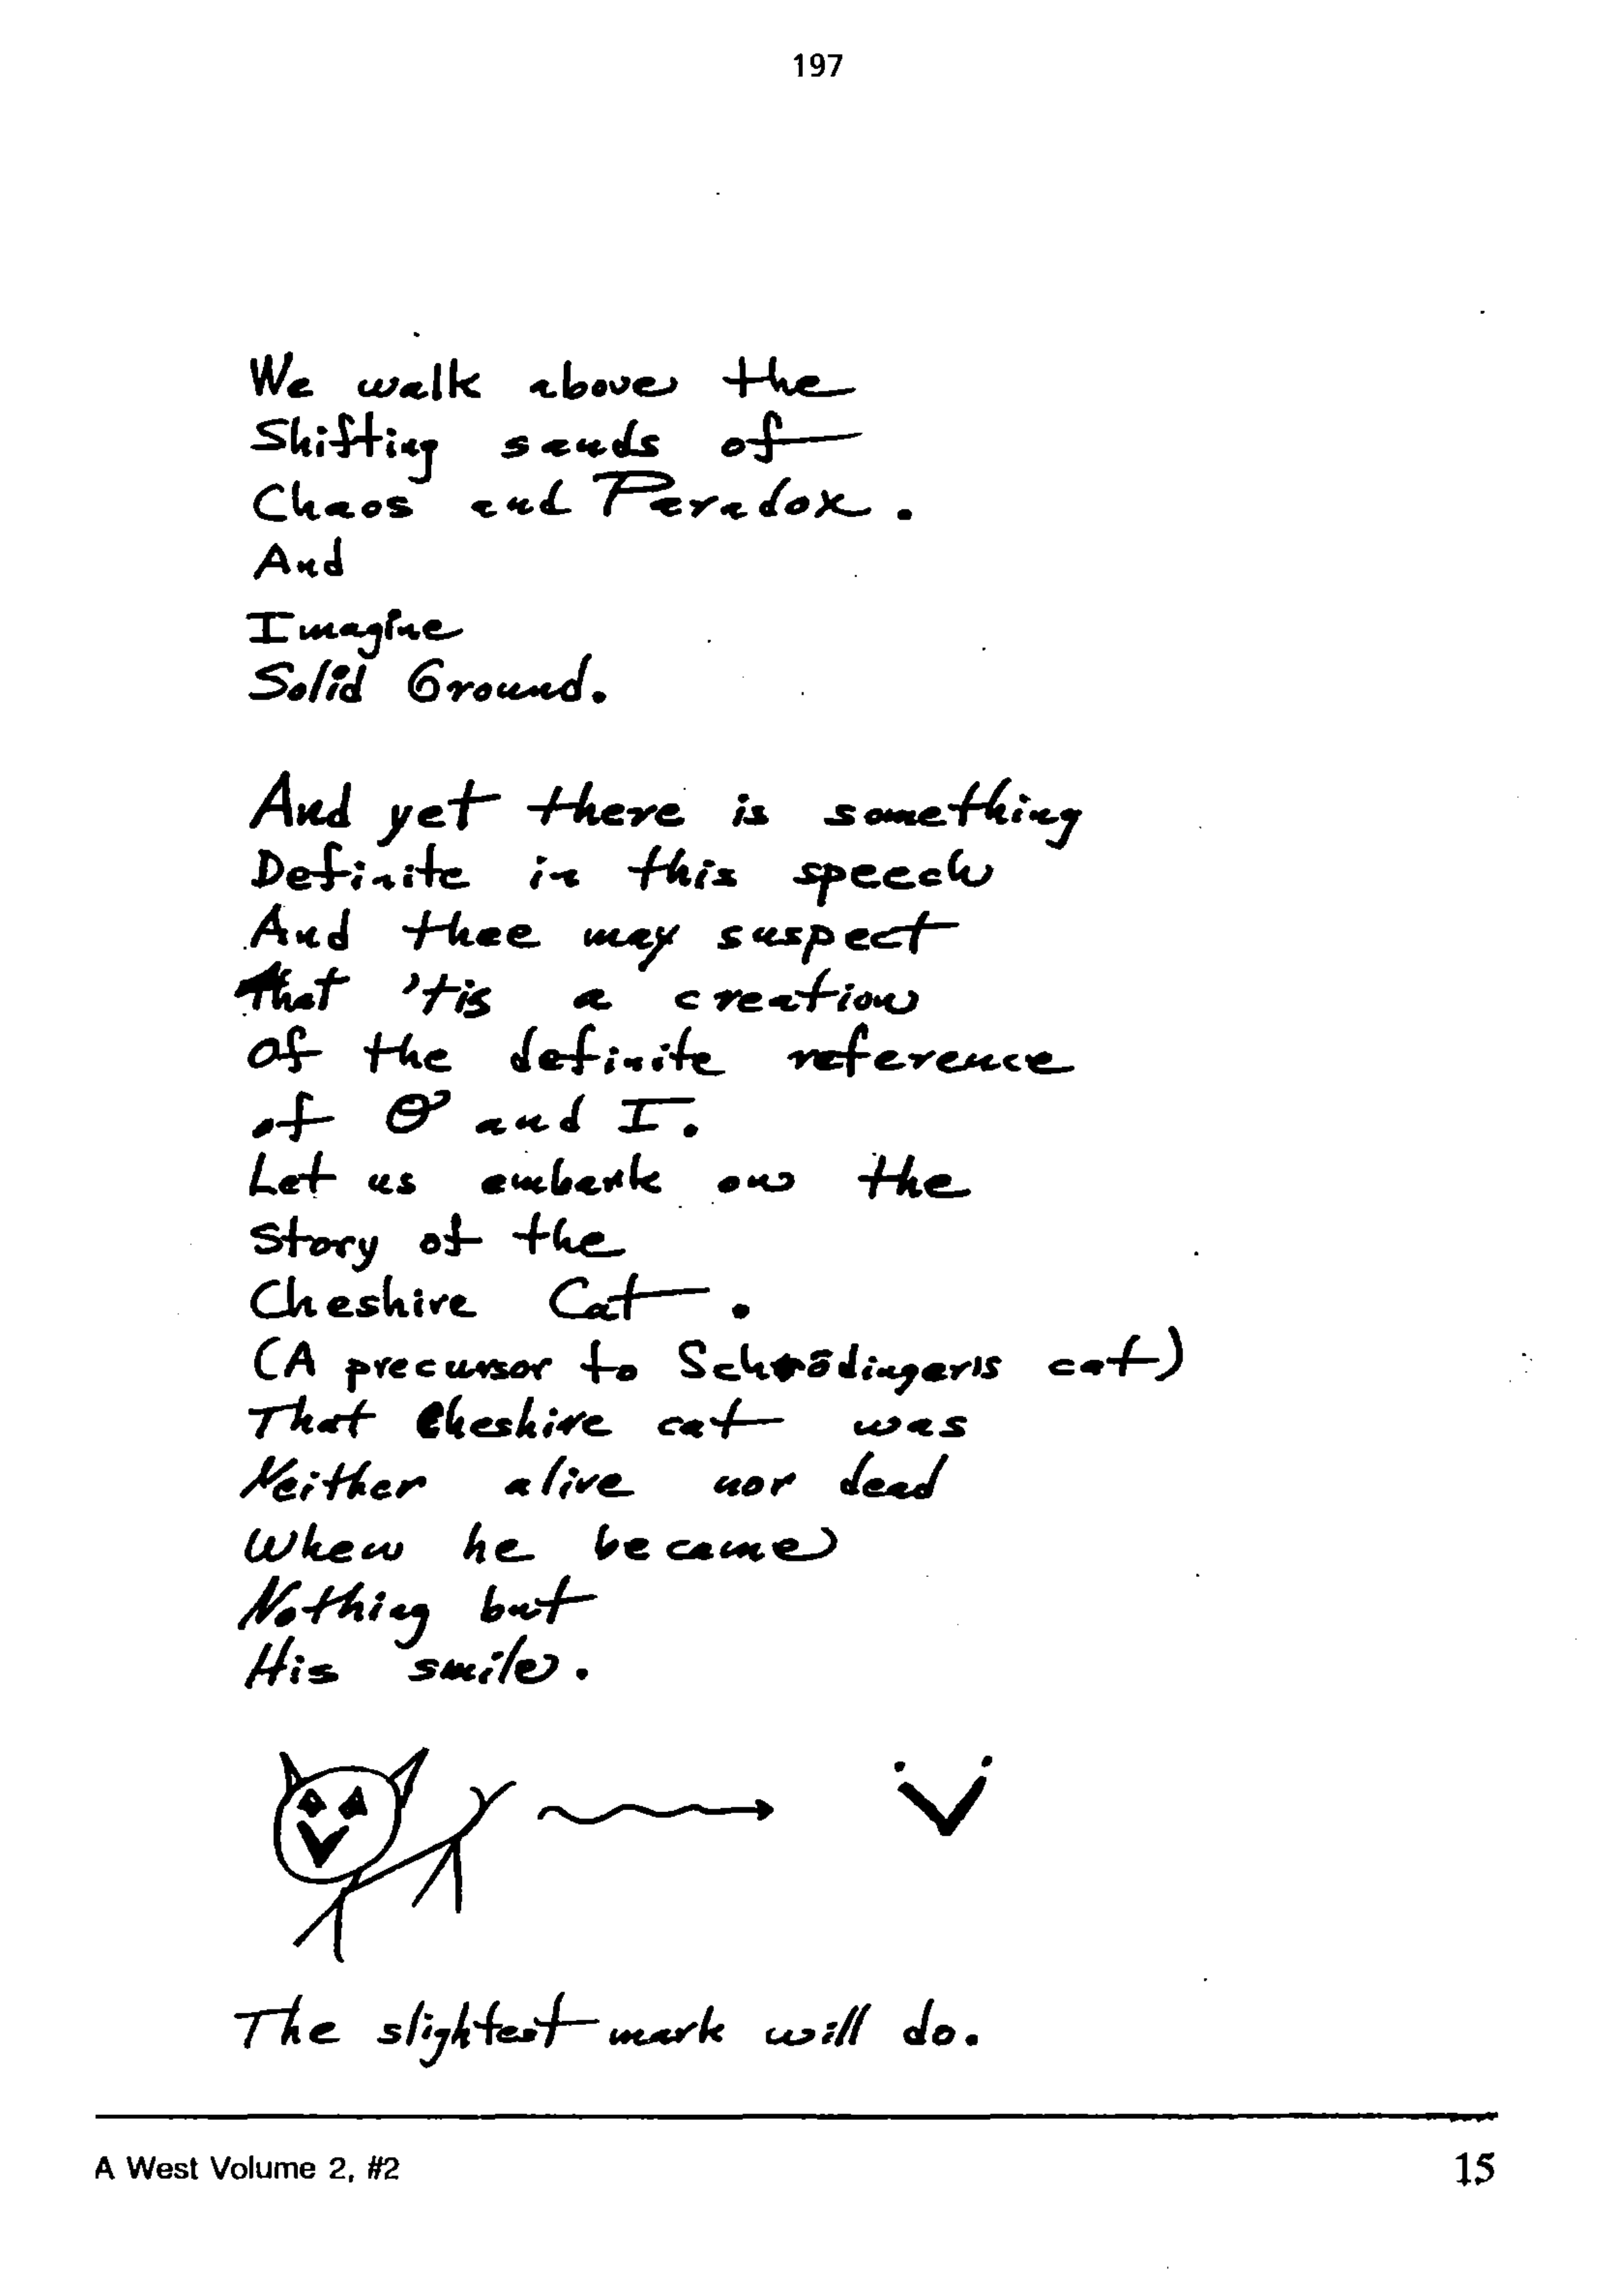 197
We walk above the
Shifting sands of
Chaos and Paradox.
And
Imagine
Solid Ground.
And yet there is something
Definite in this speech
And thee may suspect
That 'tis a creation
Of the definite reference
of and I.
Let us embark on the
Story of the
Cheshire Cat.
(A precursor to Schrödinger's cat)
That Cheshire cat was
Neither alive nor dead
When he became
Nothing but
His smile.
The slightest mark will do.
A West Volume 2, #2
15